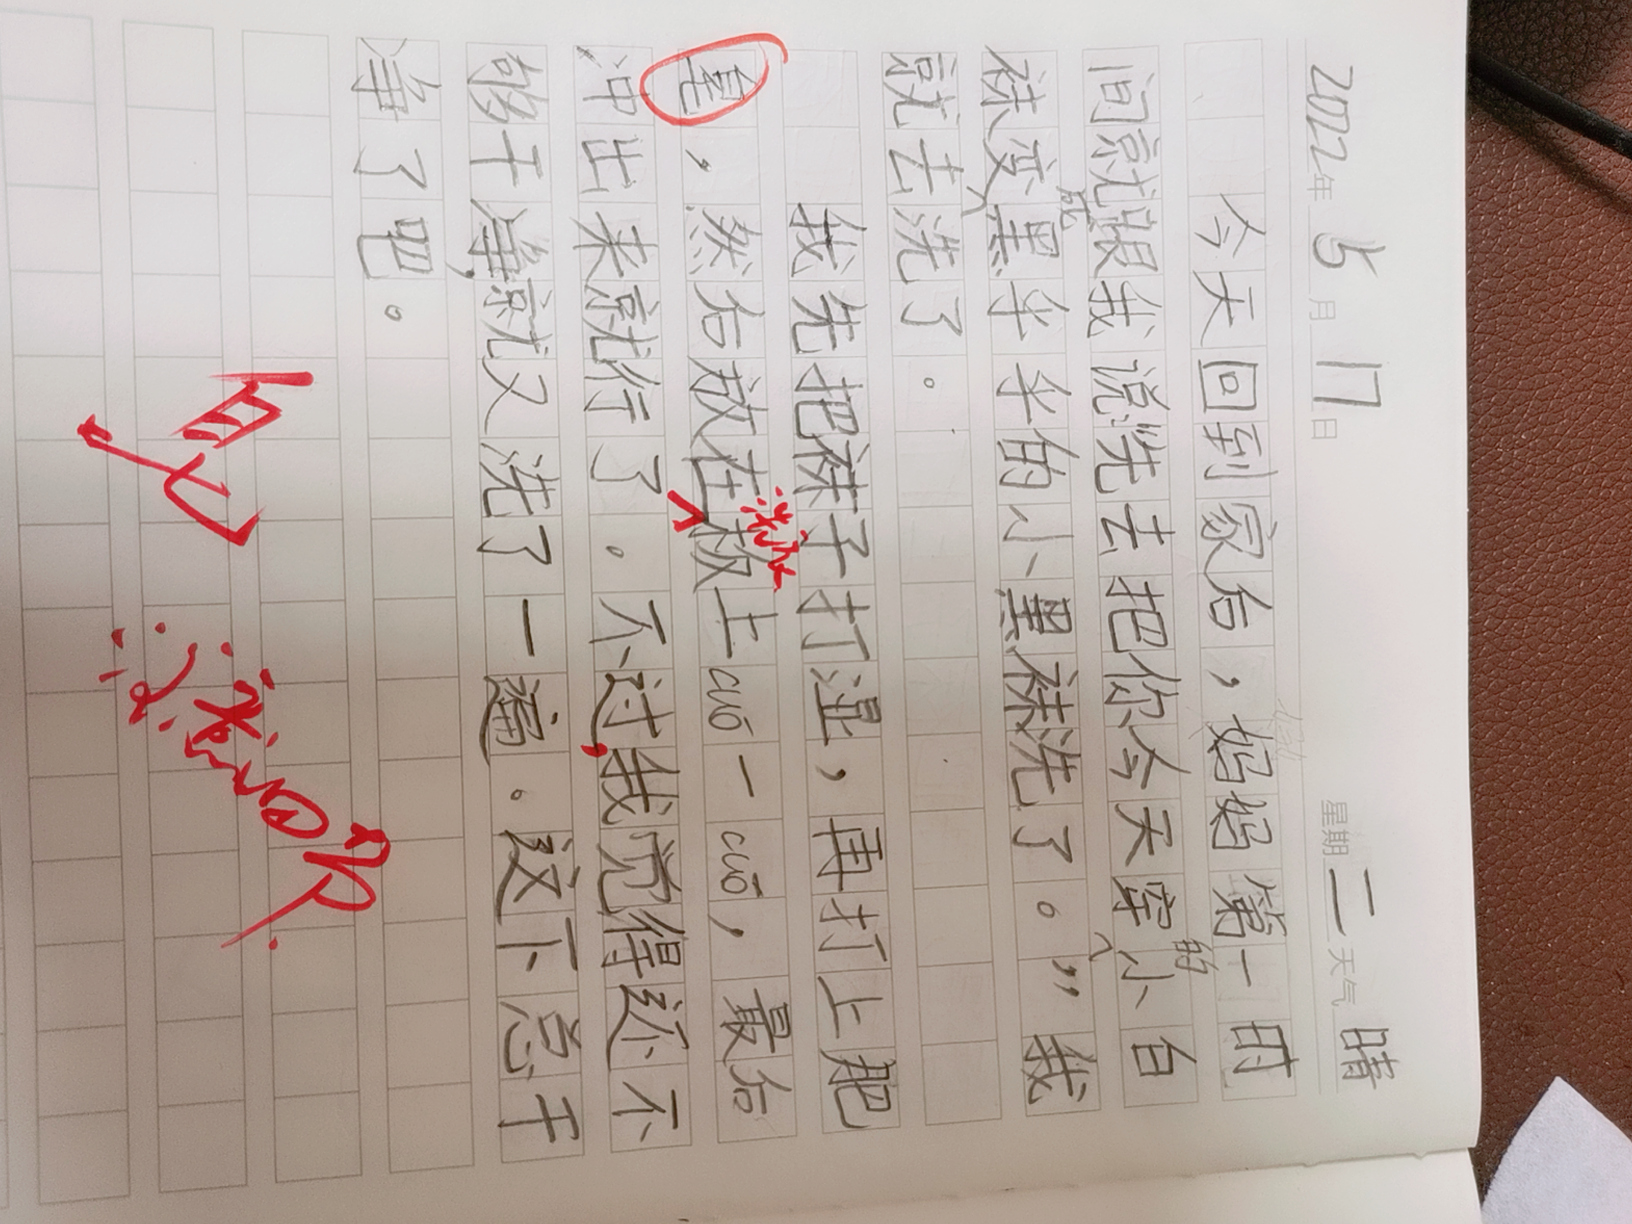 2022年5月17日 星期二 天气 晴
今天回到家后，妈妈第一时
间就跟我说洗去把你今天穿的小白
袜变成黑乎乎的小黑袜洗了。”我
就去洗了。
我先把袜子打湿，再打上肥
皂，然后放在洗衣板上cuō一cuō，最后
冲出来就行了。不过，我觉得还不
够干净，就又洗了一遍。这下总干
净了吧。